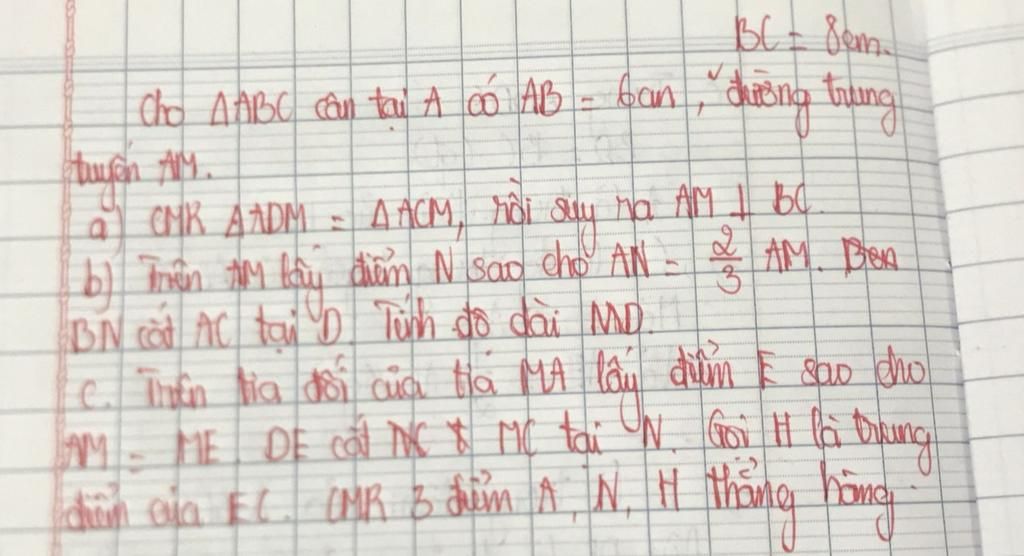 BC = 8cm.
Cho ΔABC cân tại A có AB = 6cm, ˅ đường trung
tuyến AM.
a) CMR ΔADM = ΔACM, rồi suy ra AM ⊥ BC.
b) Trên AM lấy điểm N sao cho AN = 2/3 AM.
BN cắt AC tại D. Tính độ dài MD.
c. Trên tia đối của tia MA lấy điểm E sao cho
AM = ME. DE cắt MC tại N. Gọi H là trung
điểm của EC. CMR 3 điểm A, N, H thẳng hàng.